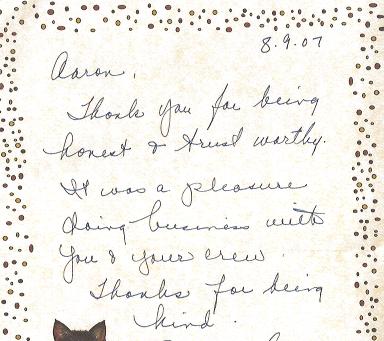 8.9.07
Aaron,
Thank you for being
honest & trust worthy.
It was a pleasure
doing business with
you & your crew.
Thanks for being
kind.